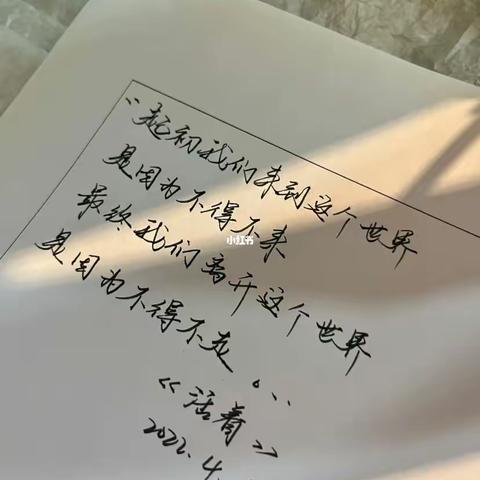 “起初我们来到这个世界
是因为不得不来
最终我们离开这个世界
是因为不得不走。...
《活着》
2022.4.
小红书